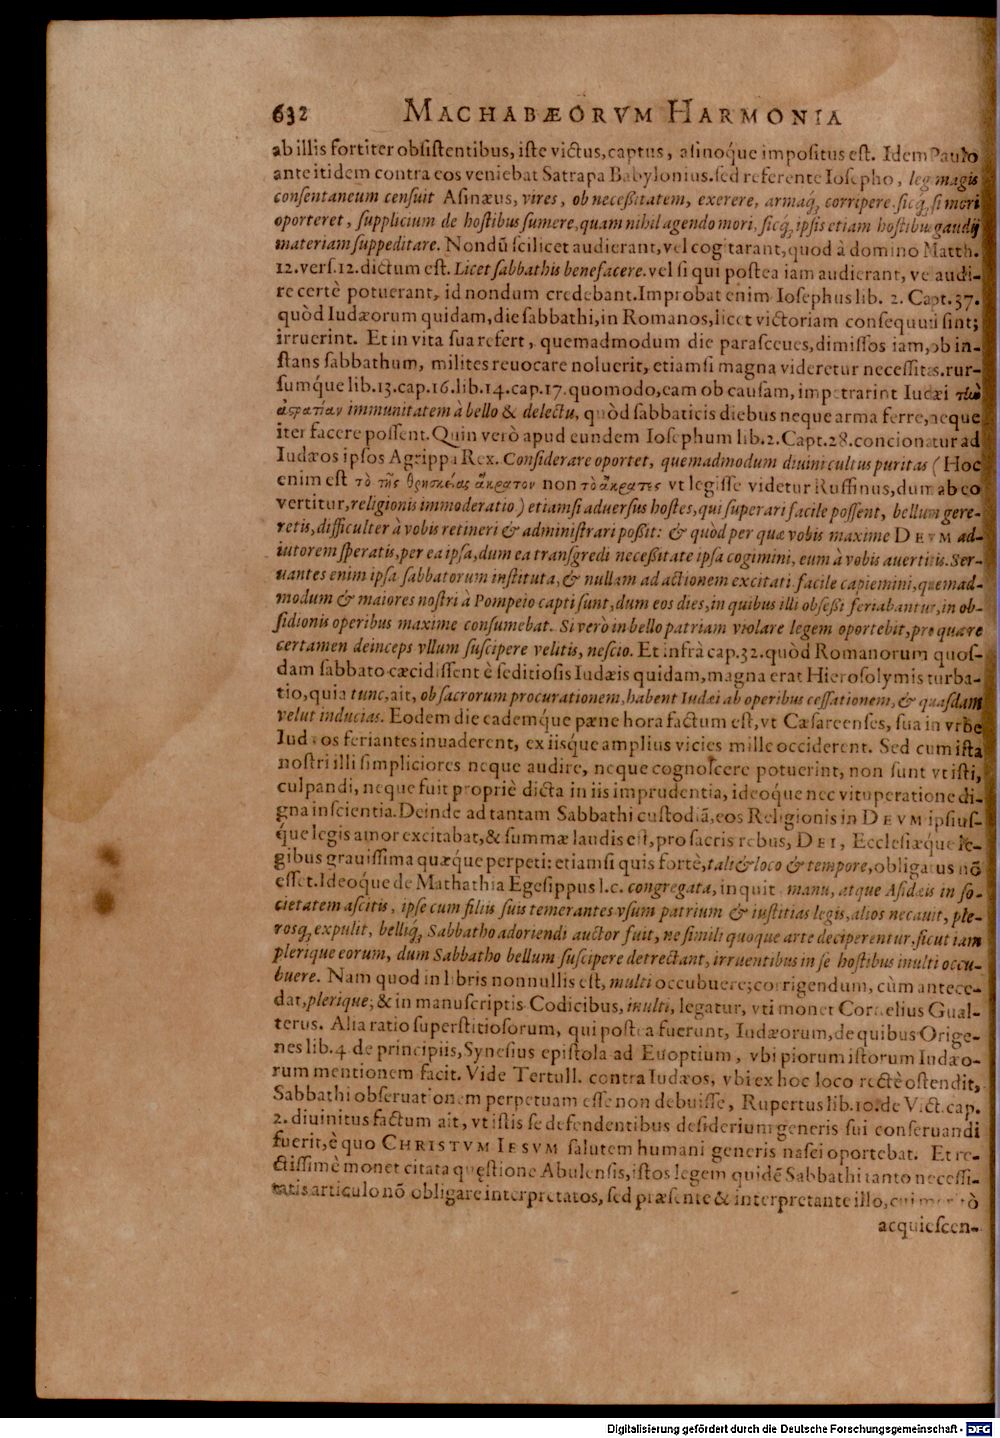 632 MACHABÆORVM HARMONIA
ab illis fortiter obsistentibus, iste victus, captus, asinoque impositus est. Idem Paulo
ante itidem contra eos veniebat Satrapa Babylonius. sed referente Iosepho, leg magis
consentaneum censuit Asinæus, vires, ob necessitatem, exerere, armaq́; corripere. sicq́; si mori
oporteret, supplicium de hostibus sumere, quam nihil agendo mori, sicq́; ipsis etiam hostibus gaudij
materiam suppeditare. Nondū scilicet audierant, vel cogitarant, quod à domino Matth.
12. vers. 12. dictum est. Licet sabbathis benefacere. vel si qui postea iam audierant, vel audi-
re certè potuerant, id nondum credebant. Improbat enim Iosephus lib. 2. Capt. 37.
quòd Iudæorum quidam, die sabbathi, in Romanos, licet victoriam consequuti sint;
irruerint. Et in vita sua refert, quemadmodum die parasceues, dimissos iam, ob in-
stans sabbathum, milites reuocare noluerit, etiamsi magna videretur necessitas. rur-
sumq́ue lib. 13. cap. 16. lib. 14. cap. 17. quomodo, eam ob causam, impetrarint Iudæi τὼ
ἀςρατίαν immunitatem à bello & delectu, quòd sabbaticis diebus neque arma ferre, neque
iter facere possent. Quin verò apud eundem Iosephum lib. 2. Capt. 28. concionatur ad
Iudæos ipsos Agrippa Rex. Considerare oportet, quemadmodum diuini cultus puritas (Hoc
enim est τὸ τῆς θρησκείας ἄκρατον non τὸ ἀκρατὲς vt legisse videtur Ruffinus, dum ab eo
vertitur, religionis immoderatio) etiamsi aduersus hostes, qui superari facile possent, bellum gere-
retis, difficulter à vobis retineri & administrari possit: & quòd per quæ vobis maxime DEVM ad-
iutorem speratis, per ea ipsa, dum ea transgredi necessitate ipsa cogimini, eum à vobis auertitis. Ser-
uantes enim ipsa sabbatorum instituta, & nullam ad actionem excitati facile capiemini, quemad-
modum & maiores nostri à Pompeio capti sunt, dum eos dies, in quibus illi obsessi feriabantur, in ob-
sidionis operibus maxime consumebat. Si verò in bello patriam violare legem oportebit, pro quare
certamen deinceps vllum suscipere velitis, nescio. Et infrà cap. 32. quòd Romanorum quos-
dam sabbato cæcidissent è seditiosis Iudæis quidam, magna erat Hierosolymis turba-
tio, quia tunc, ait, ob sacrorum procurationem, habent Iudæi ab operibus cessationem, & quasdam
velut inducias. Eodem die eademq́ue pæne hora factum est, vt Cæsareenses, sua in vrbe
Iudæos feriantes inuaderent, ex iisque amplius vicies mille occiderent. Sed cum ista
nostri illi simpliciores neque audire, neque cognoscere potuerint, non sunt vt isti,
culpandi, neque fuit propriè dicta in iis imprudentia, ideoq́ue nec vituperatione di-
gna inscientia. Deinde ad tantam Sabbathi custodiā, eos Religionis in DEVM ipsius-
q́ue legis amor excitabat, & summæ laudis est, pro sacris rebus, DEI, Ecclesiæq́ue le-
gibus grauissima quæque perpeti: etiamsi quis fortè, tali & loco & tempore, obligatus nō
esset. Ideoque de Mathathia Egesippus l. c. congregata, inquit manu, atque Asidæis in so-
cietatem ascitis, ipse cum filiis suis temerantes vsum patrium & iustitias legis, alios necauit, ple-
rosq́; expulit, belliq́; Sabbatho adoriendi auctor fuit, ne simili quoque arte deciperentur. sicut iam
plerique eorum, dum Sabbatho bellum suscipere detrectant, irruentibus in se hostibus inulti occu-
buere. Nam quod in libris nonnullis est, multi occubuere; corrigendum, cùm antece-
dat, plerique; & in manuscriptis Codicibus, inulti, legatur, vti monet Cornelius Gual-
terus. Alia ratio superstitiosorum, qui postea fuerunt, Iudæorum, de quibus Orige-
nes lib. 4 de principiis, Synesius epistola ad Euoptium, vbi piorum istorum Iudæo-
rum mentionem facit. Vide Tertull. contra Iudæos, vbi ex hoc loco rectè ostendit,
Sabbathi obseruationem perpetuam esse non debuisse, Rupertus lib. 10. de Vict. cap.
2. diuinitus factum ait, vt istis se defendentibus desiderium generis sui conseruandi
fuerit, è quo CHRISTVM IESVM salutem humani generis nasci oportebat. Et re-
ctissimè monet citata quęstione Abulensis, istos legem quidē Sabbathi tanto necessi-
tatis articulo nō obligare interpretatos, sed præsente & interpretante illo, cui meritò
acquiescen-
Digitalisierung gefördert durch die Deutsche Forschungsgemeinschaft - DFG